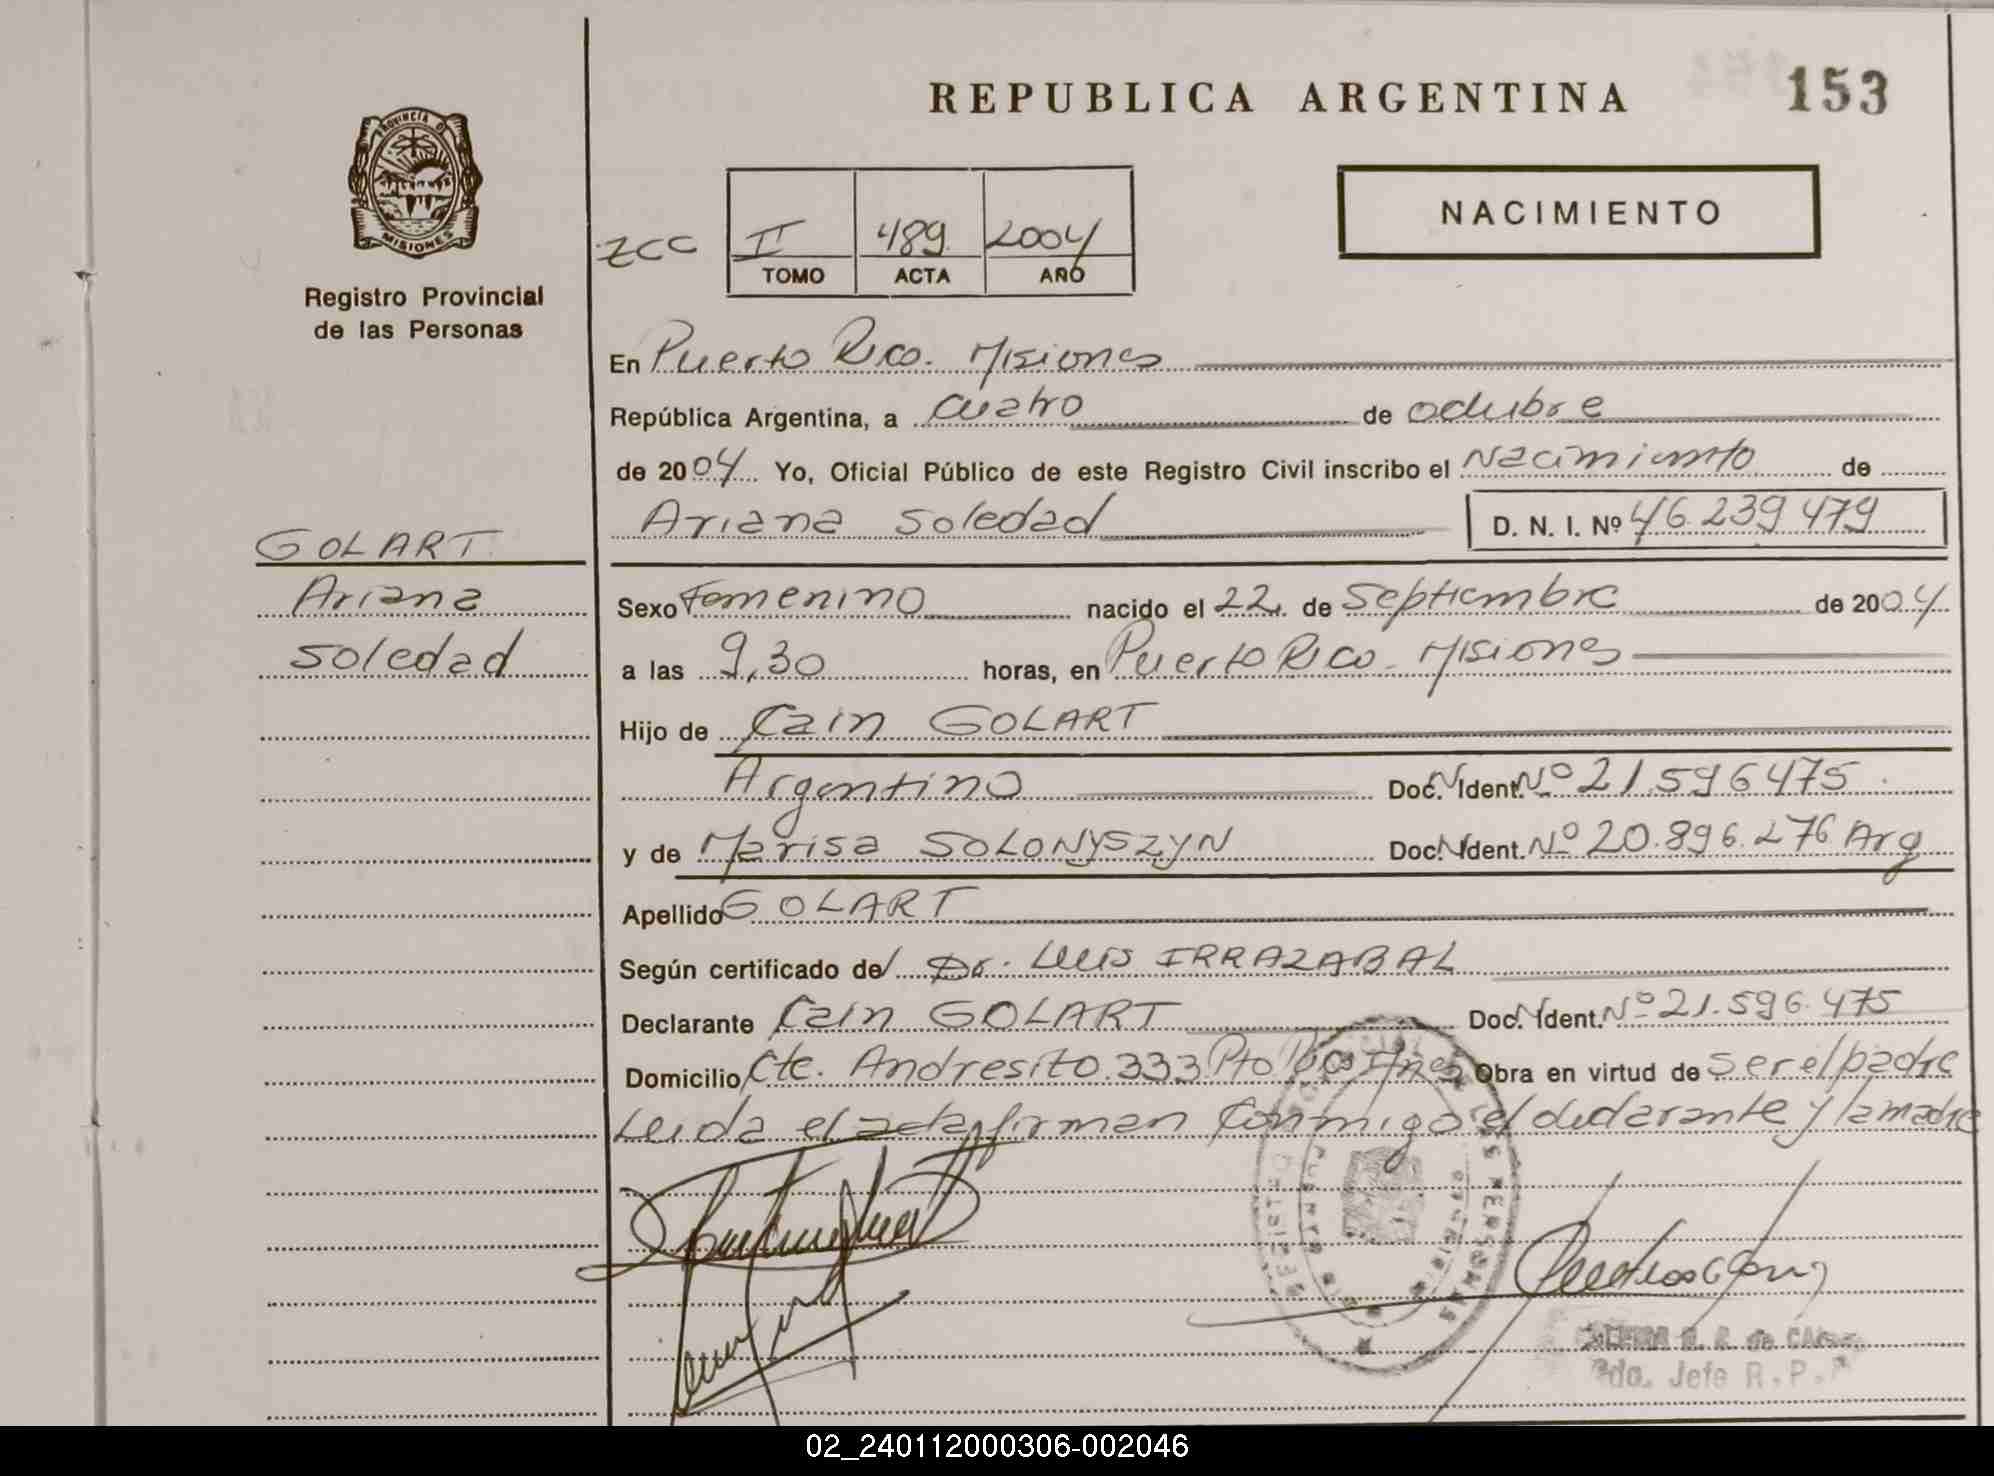 REPUBLICA ARGENTINA 153
PROVINCIA DE
MISIONES
Registro Provincial
de las Personas
NACIMIENTO
ZCC II 489 2004
TOMO ACTA AÑO
En Puerto Rico. Misiones
República Argentina, a cuatro de octubre
de 2004 Yo, Oficial Público de este Registro Civil inscribo el Nacimiento de
Ariana Soledad D. N. I. Nº 46.239.479
GOLART
Ariana
Soledad
Sexo Femenino nacido el 22 de Septiembre de 2004
a las 9,30 horas, en Puerto Rico. Misiones
Hijo de Cain GOLART
Argentino Doc. N. Ident. Nº 21.596475
y de Marisa SOLONYSZYN Doc. N. Ident. Nº 20.896.276 Arg
Apellido GOLART
Según certificado del Dr. Luis IRRAZABAL
Declarante Cain GOLART Doc. N. Ident. Nº 21.596.475
Domicilio Cte. Andresito 333 Pto Rico Mnes Obra en virtud de ser el padre
Leida el acta firman conmigo el declarante y la madre
REGISTRO LAS PERSONAS
PUERTO RICO
MISIONES
de
Jefe R.P.P
02_240112000306-002046